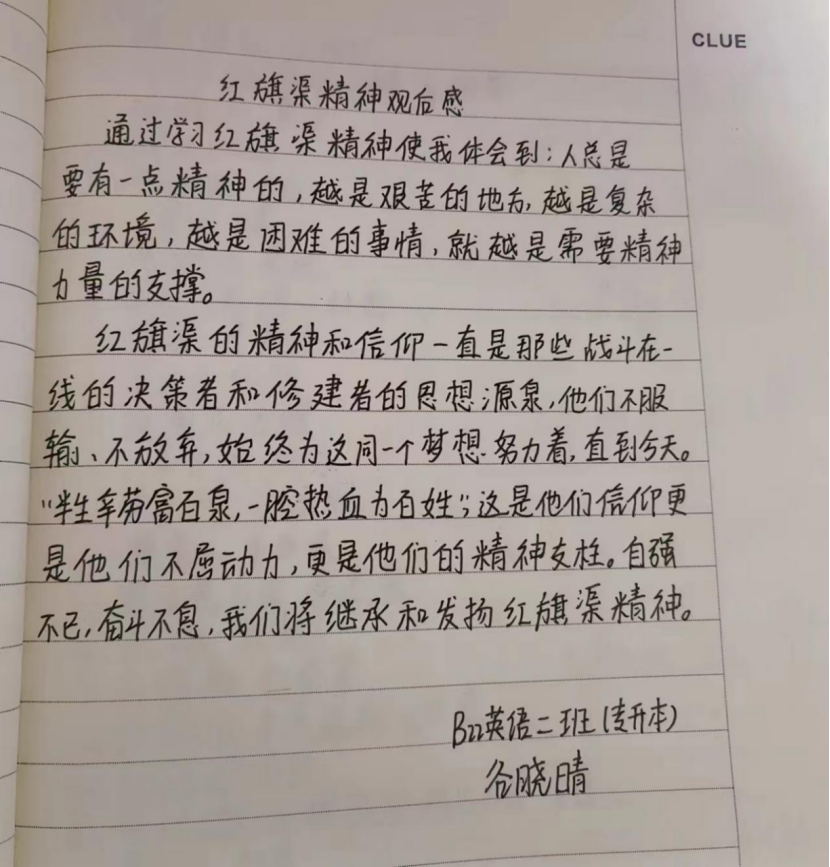 CLUE
红旗渠精神观后感
通过学习红旗渠精神使我体会到：人总是
要有一点精神的，越是艰苦的地方，越是复杂
的环境，越是困难的事情，就越是需要精神
力量的支撑。
红旗渠的精神和信仰一直是那些战斗在一
线的决策者和修建者的思想源泉，他们不服
输、不放弃，始终为这同一个梦想努力着，直到今天。
“半生辛劳富石泉，一腔热血为百姓”；这是他们信仰更
是他们不屈动力，更是他们的精神支柱。自强
不已，奋斗不息，我们将继承和发扬红旗渠精神。
B22英语二班（专升本）
谷晓晴